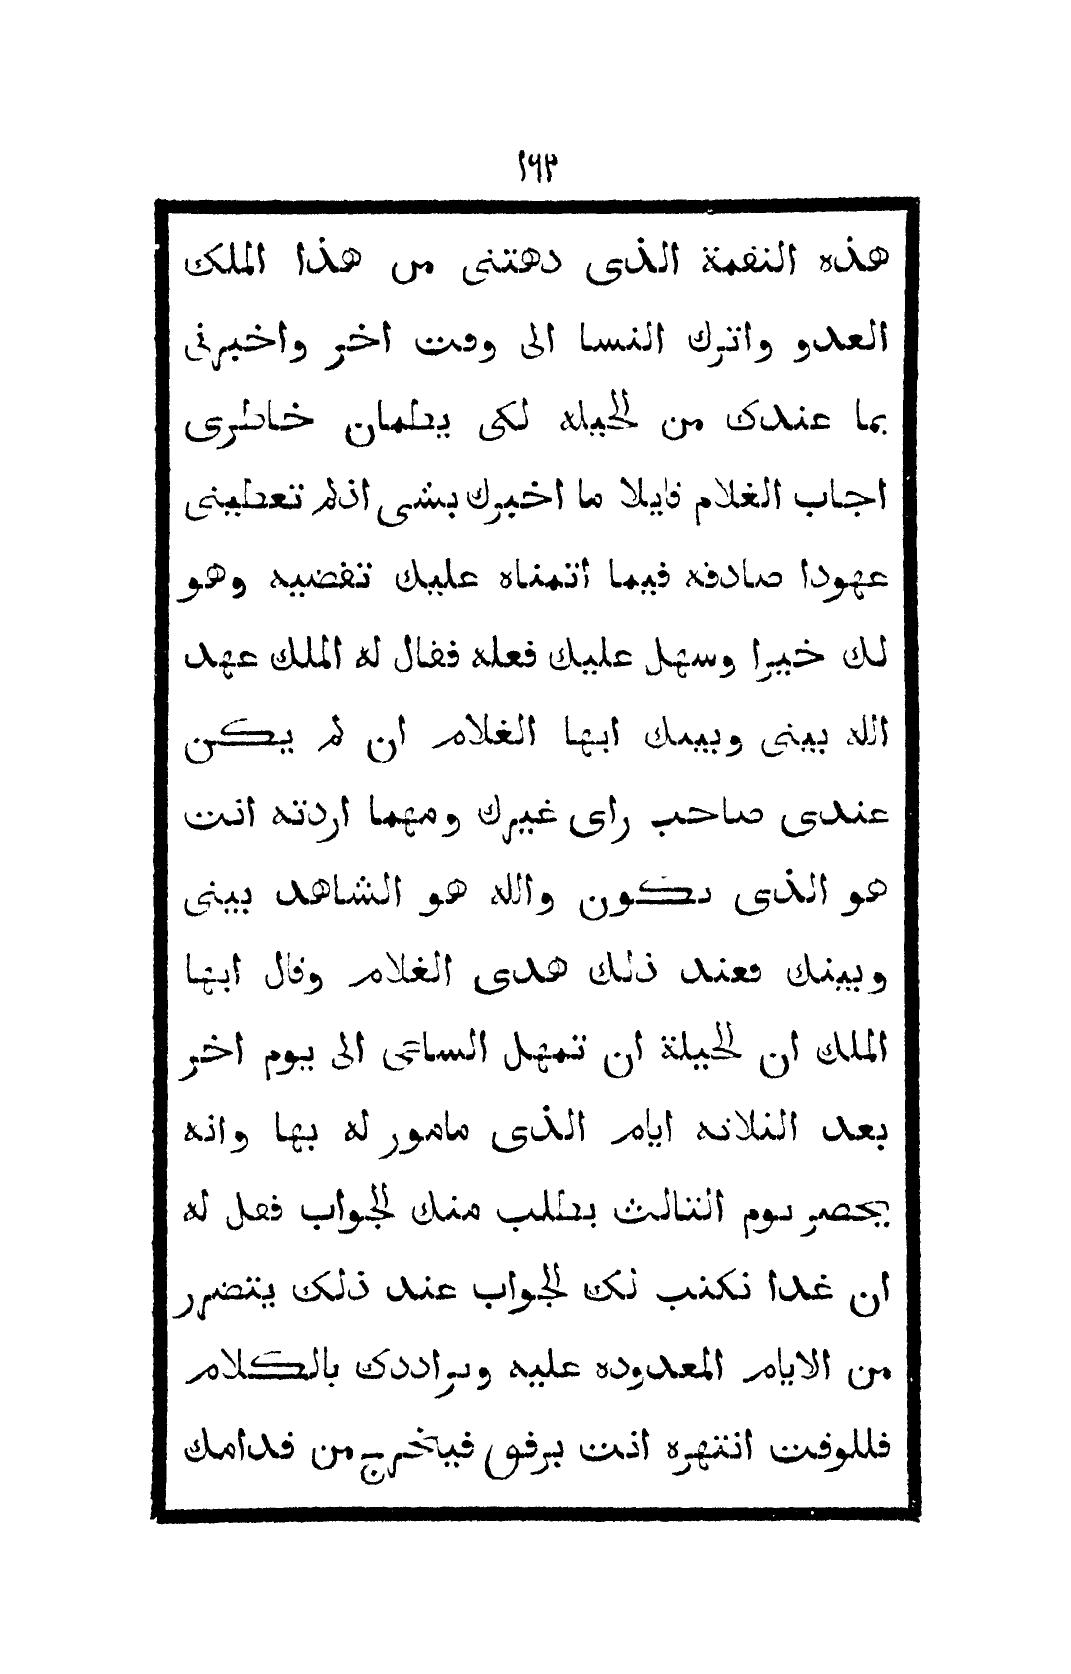 ١٦٣
هذه النقمة الذى دهتنى من هذا الملك
العدو واترك النسا الى وقت اخر واخبرنى
بما عندك من الحيله لكى يطمان خاطرى
اجاب الغلام قايلا ما اخبرك بشى اذلم تعطينى
عهودا صادقه فيما اتمناه عليك تقضيه وهو
لك خيرا وسهل عليك فعله فقال له الملك عهد
الله بينى وبينك ايها الغلام ان لم يكن
عندى صاحب راى غيرك ومهما اردته انت
هو الذى يكون والله هو الشاهد بينى
وبينك فعند ذلك هدى الغلام وقال ايها
الملك ان الحيلة ان تمهل الساعى الى يوم اخر
بعد الثلاثه ايام الذى مامور له بها وانه
يحضر يوم الثالث يطلب منك الجواب فقل له
ان غدا نكتب لك الجواب عند ذلك يتضرر
من الايام المعدوده عليه ويراددك بالكلام
فللوقت انتهره انت برفق فيخرج من قدامك